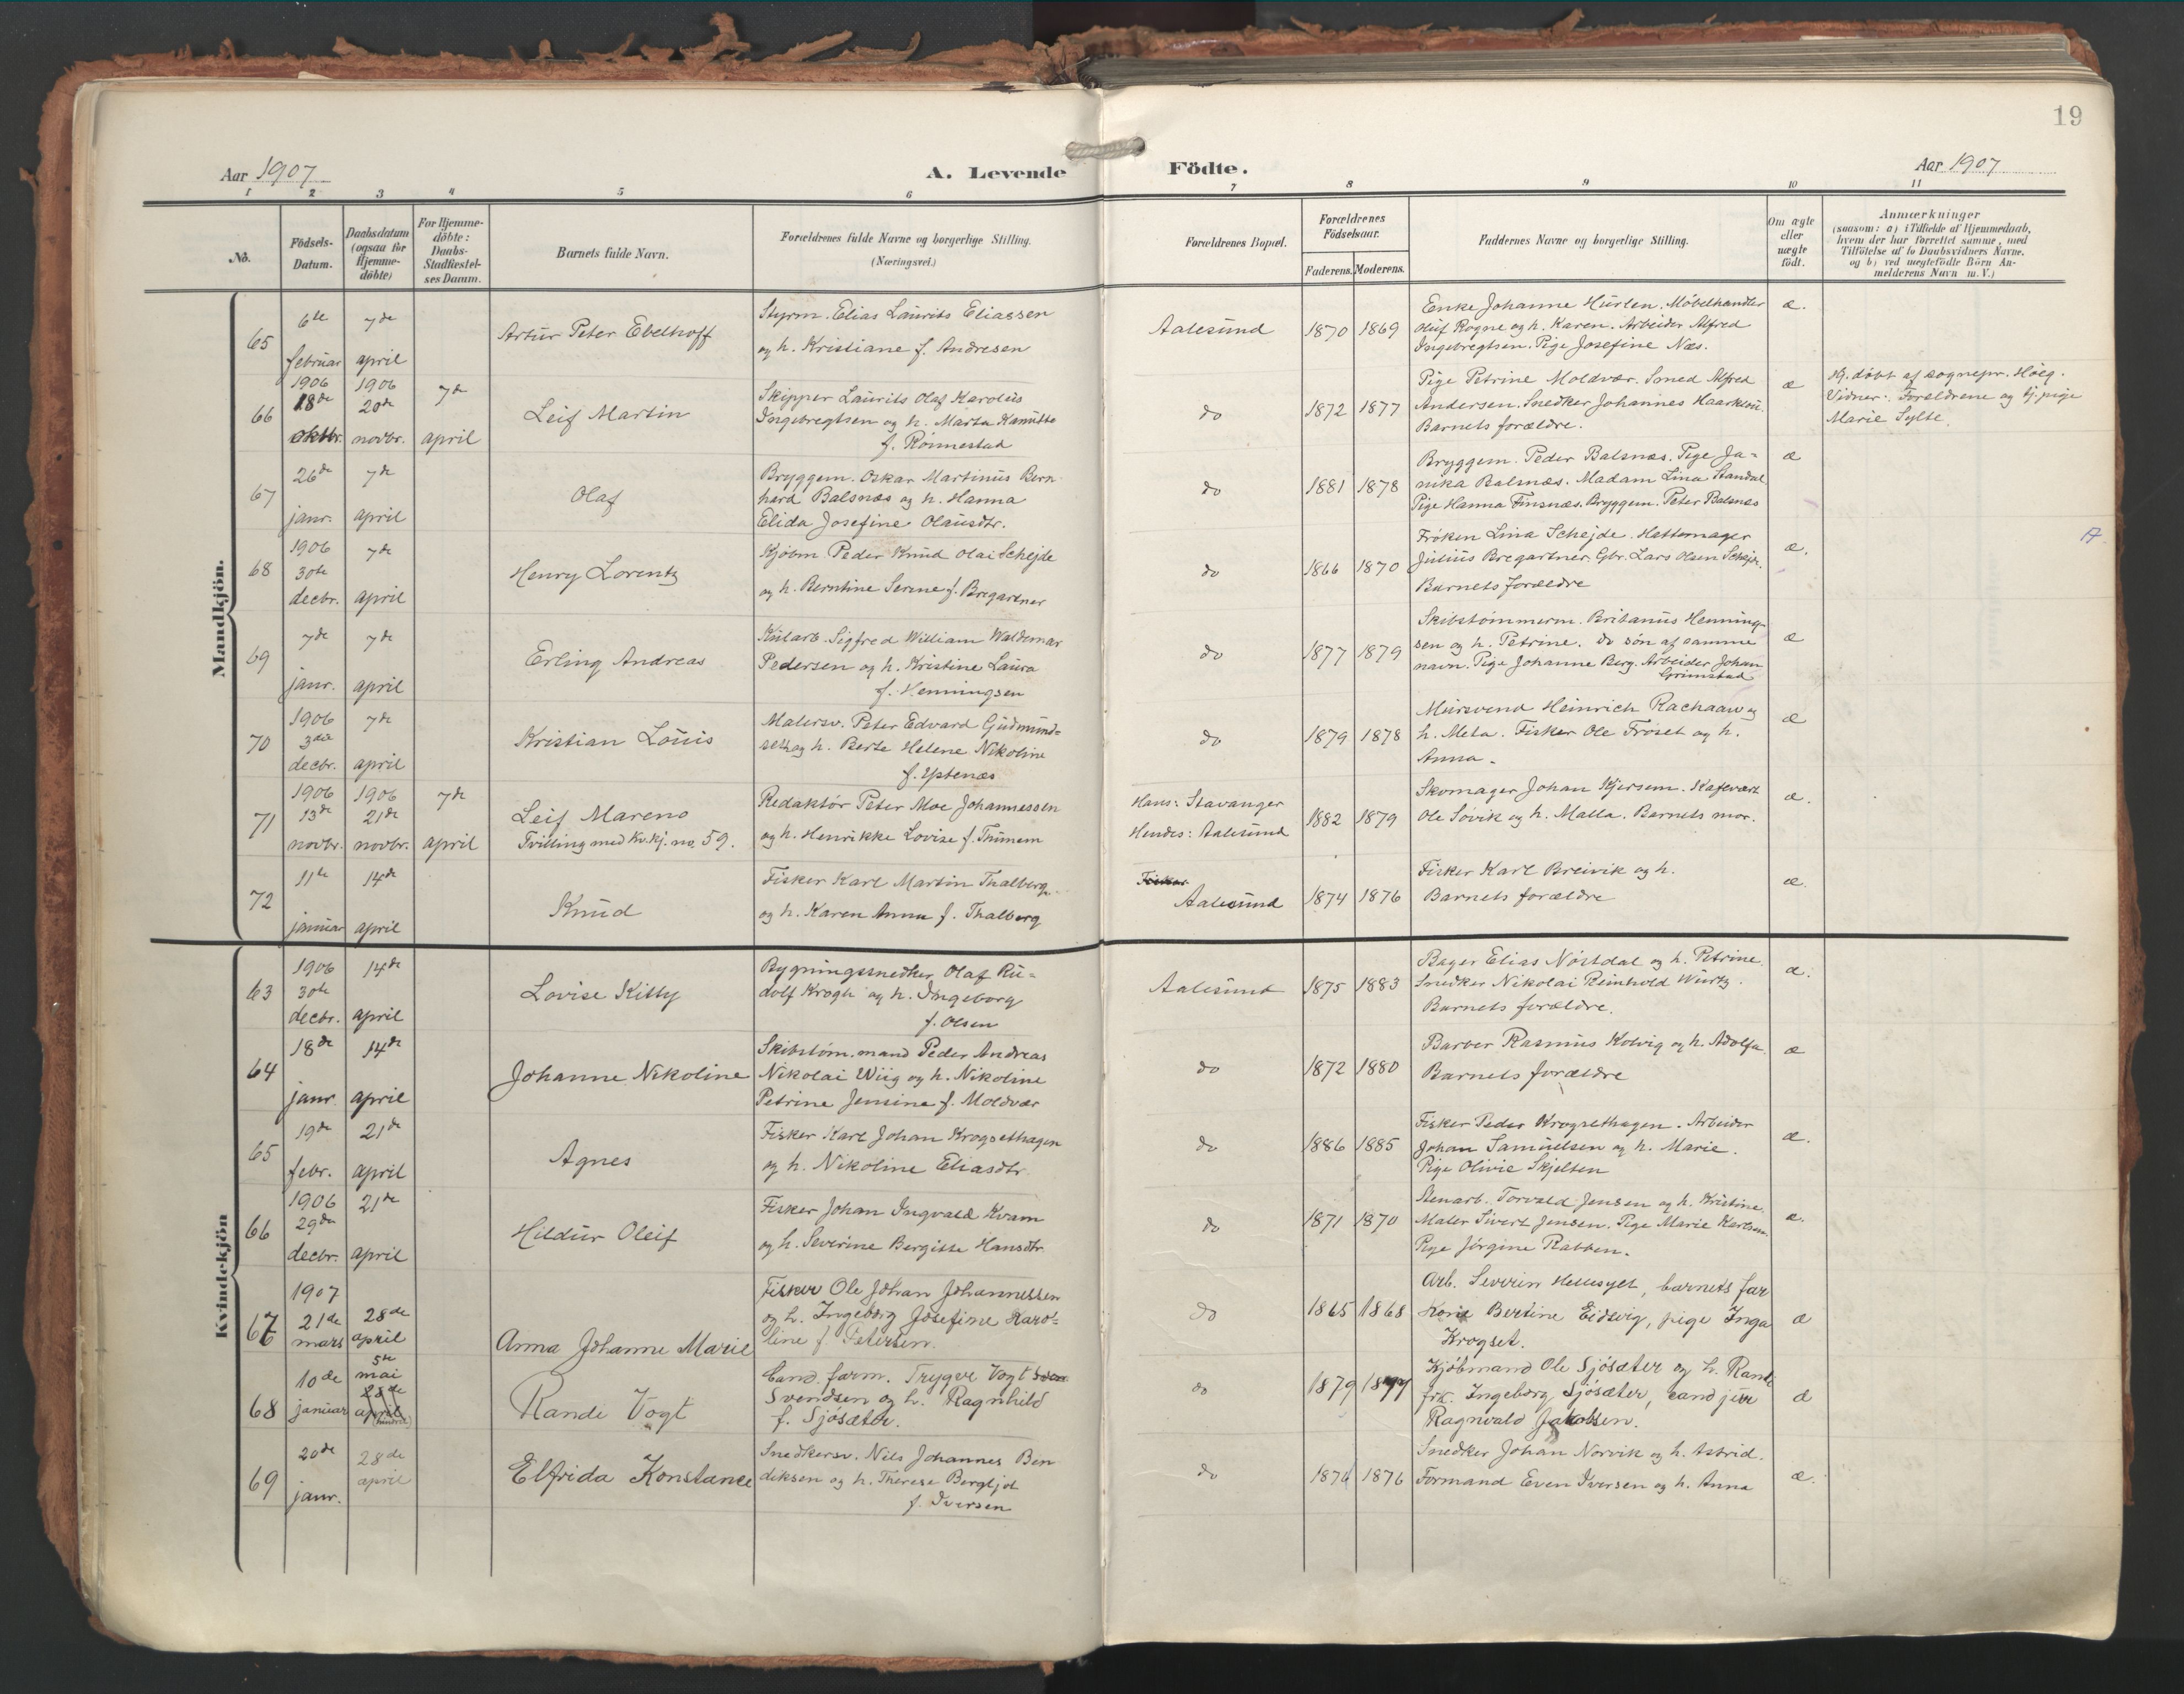 19
Aar 1907
A. Levende Födte.
Aar 1907
1 2 3 4 5 6 7 8 9 10 11
No.
Födsels-Datum.
Daabsdatum (ogsaa for Hjemme-döbte)
For Hjemme-döbte: Daabs-Stadfæstel-ses Datum.
Barnets fulde Navn.
Forældrenes fulde Navne og borgerlige Stilling.
(Næringsvei.)
Forældrenes Bopæl.
Forældrenes Födselsaar.
Faderens. Moderens.
Faddernes Navne og borgerlige Stilling.
Om ægte eller uægte födt.
Anmærkninger
(saasom: a) i Tilfælde af Hjemmedaab,
hvem der har forrettet samme, med
Tilföielse af to Daabsvidners Navne.
og b) ved uægtefödte Börn An-
melderens Navn m. V.)
Mandkjön.
65
6te februar
7de april
Artur Peter Ebelhoff
Styrm. Elias Laurits Eliassen
og h. Kristiane f. Andresen
Aalesund
1870 1869
Enke Johanne Hurlen. Møbelhandler
Oluf Rogne og h. Karen. Arbeider Alfred
Ingebregtsen. Pige Josefine Næs.
æ.
66
1906 18de oktbr.
1906 20de novbr.
7de april
Leif Martin
Skipper Laurits Olaf Karolus
Ingebregtsen og h. Marta Kanutte
f. Rønnestad
do
1872 1877
Pige Petrine Moldvær. Smed Alfred
Andersen. Snedker Johannes
Barnets forældre.
æ
Hj. døbt af sognepr. Høeg.
Vidner: Forældrene og tj. pige
Marie Sylte.
67
26de janr.
7de april
Olaf
Bryggem. Oskar Martinus Bern-
hard Balsnæs og h. Hanna
Elida Josefine Olausdtr.
do
1881 1878
Bryggem. Peder Balsnæs. Pige Ja-
nika Balsnæs. Madam Lina Standal
Pige Hanna Finsnæs. Bryggem. Peter Balsnæs
æ
68
1906 30te decbr.
7de april
Henry Lorentz
Kjøbm. Peder Knud Olai Schejde
og h. Berntine Serine f. Bregartner
do
1866 1870
Frøken Lina Schejde. Hattemager
Julius Bregartner. Gbr. Lars Olsen Schejde.
Barnets forældre
æ.
69
7de janr.
7de april
Erling Andreas
Kularb. Sigfred William Waldemar
Pedersen og h. Kristine Laura
f. Henningsen
do
1877 1879
Skibstømmerm. Britanus Henning-
sen og h. Petrine. do søn af samme
navn. Pige Johanne Berg. Arbeider Johan
Grimstad
æ
70
1906 3die decbr.
7de april
Kristian Louis
Malersv. Peter Edvard Gudmund-
seth og h. Berte Helene Nikoline
f. Ystenæs
do
1879 1878
Mursvend Heinrich Rachaaw og
h. Meta. Fisker Ole Frøset og h.
Anna.
æ
71
1906 13de novbr.
1906 21de novbr.
7de april
Leif Mareno
Tvilling med Kv.kj. no. 59.
Redaktør Peter Moe Johannessen
og h. Henrikke Lovise f. Thunem
Hans: Stavanger
Hendes: Aalesund
1882 1879
Skomager Johan Kjersem. Kafevært
Ole Søvik og h. Malla. Barnets mor.
æ.
72
11te januar
14de april
Knud
Fisker Karl Martin Thalberg
og h. Karen Anna f. Thalberg
Aalesund
1874 1876
Fisker Karl Breivik og h.
Barnets forældre
æ.
Kvindekjön
63
1906 30te decbr.
14de april
Lovise Kitty
Bygningssnedker Olaf Ru-
dolf Krogh og h. Ingeborg
f. Olsen
Aalesund
1875 1883
Bager Elias Nørtdal og h. Petrine.
Snedker Nikolai Reinhold Wurtz.
Barnets forældre.
æ.
64
18de janr
14de april
Johanne Nikoline
Skibstøm.mand Peder Andreas
Nikolai Wiig og h. Nikoline
Petrine Jensine f. Moldvær
do
1872 1880
Barber Rasmus Kolvig og h. Adolfa
Barnets forældre
æ
65
19de febr.
21de april
Agnes
Fisker Karl Johan Krogsethagen
og h. Nikoline Eliasdtr.
do
1886 1885
Fisker Peder Krogsethagen. Arbeider
Johan Samuelsen og h. Marie.
Pige Olivie Skjelten
æ.
66
1906 29de decbr.
21de april
Hildur Oleif
Fisker Johan Ingvald Kvam
og h. Severine Bergitte Hansdtr.
do
1871 1870
Stenarb. Torvald Jensen og h. Kristine.
Maler Sivert Jensen. Pige Marie Karlsen.
Pige Jørgine Rabben.
æ.
67
1907 21de mars
28de april
Anna Johanne Marie
Fisker Ole Johan Johannessen
og h. Ingeborg Josefine Karo-
line f. Petersen.
do
1865 1868
Arb. Severin Hellesylt, barnets far
Kone Bertine Eidsvig, pige Inga
Krogset.
æ
68
10de januar
5te mai
28de april
Rande Vogt
Cand. farm. Trygve Vogt
Svendsen og h. Ragnhild
f. Sjøsæter.
do
1879 1877
Kjøbmand Ole Sjøsæter og h. Rande
frk. Ingeborg Sjøsæter, cand jur
Ragnvald Jakobsen.
æ
69
20de janr.
28de april
Elfrida Konstance
Snedkersv. Nils Johannes Ben-
diksen og h. Therese Bergljot
f. Iversen
do
1876 1876
Snedker Johan Norvik og h. Astrid.
Formand Even Iversen og h. Anna
æ.